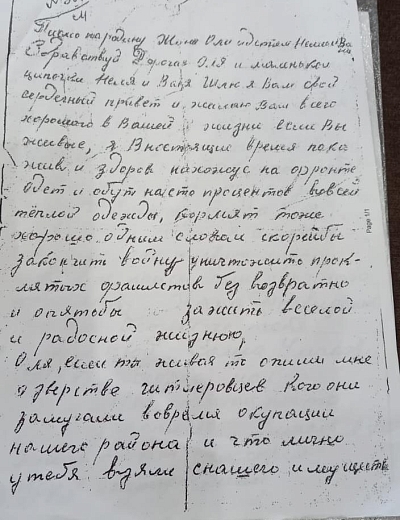 М
Писмо народину Жине Оли идетям Нелли Ва
ли
Здравствуй Дорогая Оля и маленькои
ципочки Неля и Валя Шлю я Вам свой
сердечный привет и желаю Вам всего
хорошего в Вашей жизни если Вы
живые, я Внастоящие время пока
жив и здоров нахожус на фронте
одет и обут насто процентов вовсей
тёплой одежды, кормят тоже
хорошо одним словом скорейбы
закончить войну уничтожить прок-
лятых фашистов без возвратно
и опятьбы зажить веселой
и радосной жизнюю,
Оля, если ты живая то опиши мне
о зверстве гитлеровцев кого они
замучали вовремя окупации
нашего района и что лично
утебя взяли снашего имуществ
Page 1/1